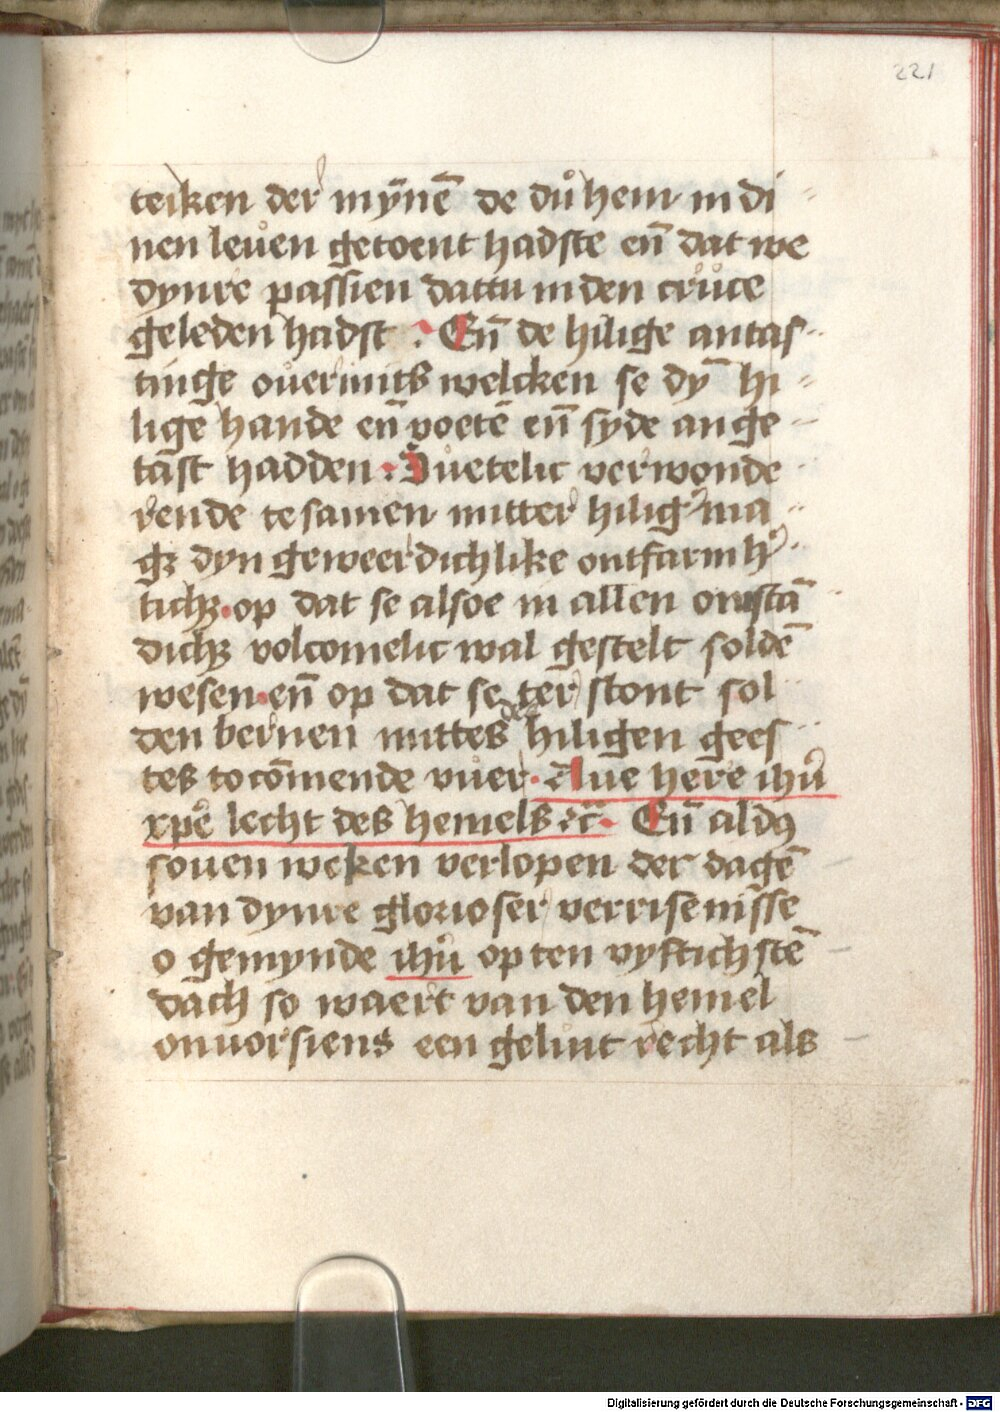 221
teiken der mÿnē de dů hem in di-
nen leuen getoent hadste en̄ dat we
dynre passien dattu in den cruce
geleden hadst : En̄ de hilige antas-
tinge ouermits welcken se dȳ hi-
lige hande en̄ voetē en̄ syde ange-
tast hadden : Suetelic verwonde
rende te samen mitter hilig' ma
gꝫ dyn geweerdichlike ontfarmh'
tichꝫ · op dat se alsoe in allen omstā
dichꝫ volcomelic wal gestelt soldē
wesen · en̄ op dat se ter stont sol
den bernen mittes des hiligen gees
tes tocōmende vuer · Aue here ihū
xpē lecht des hemels ⁊c̄ · En̄ aldꝰ
souen weken verlopen der dagē
van dynre glorioser verrisenisse
o gemynde ihū op ten vyftichstē
dach so waert van den hemel
onuorsiens een gelůut recht als
Digitalisierung gefördert durch die Deutsche Forschungsgemeinschaft - DFG